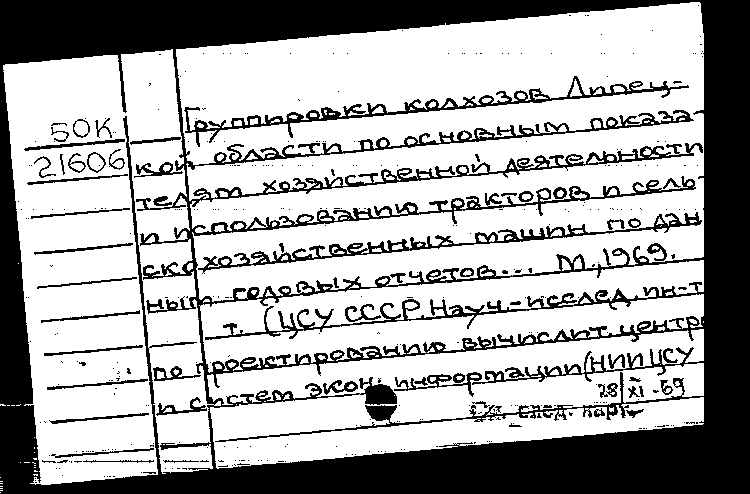 50К
21606
Группировки колхозов Липец-
кой области по основным показа-
телям хозяйственной деятельности
и использованию тракторов и сель-
скохозяйственных машин по дан-
ным годовых отчетов... М., 1969.
т. (ЦСУ СССР. Науч.-исслед. ин-т
по проектированию вычислит. центро
и систем экон. информации (НИИ ЦСУ
28/XI-69
См. след. карт.